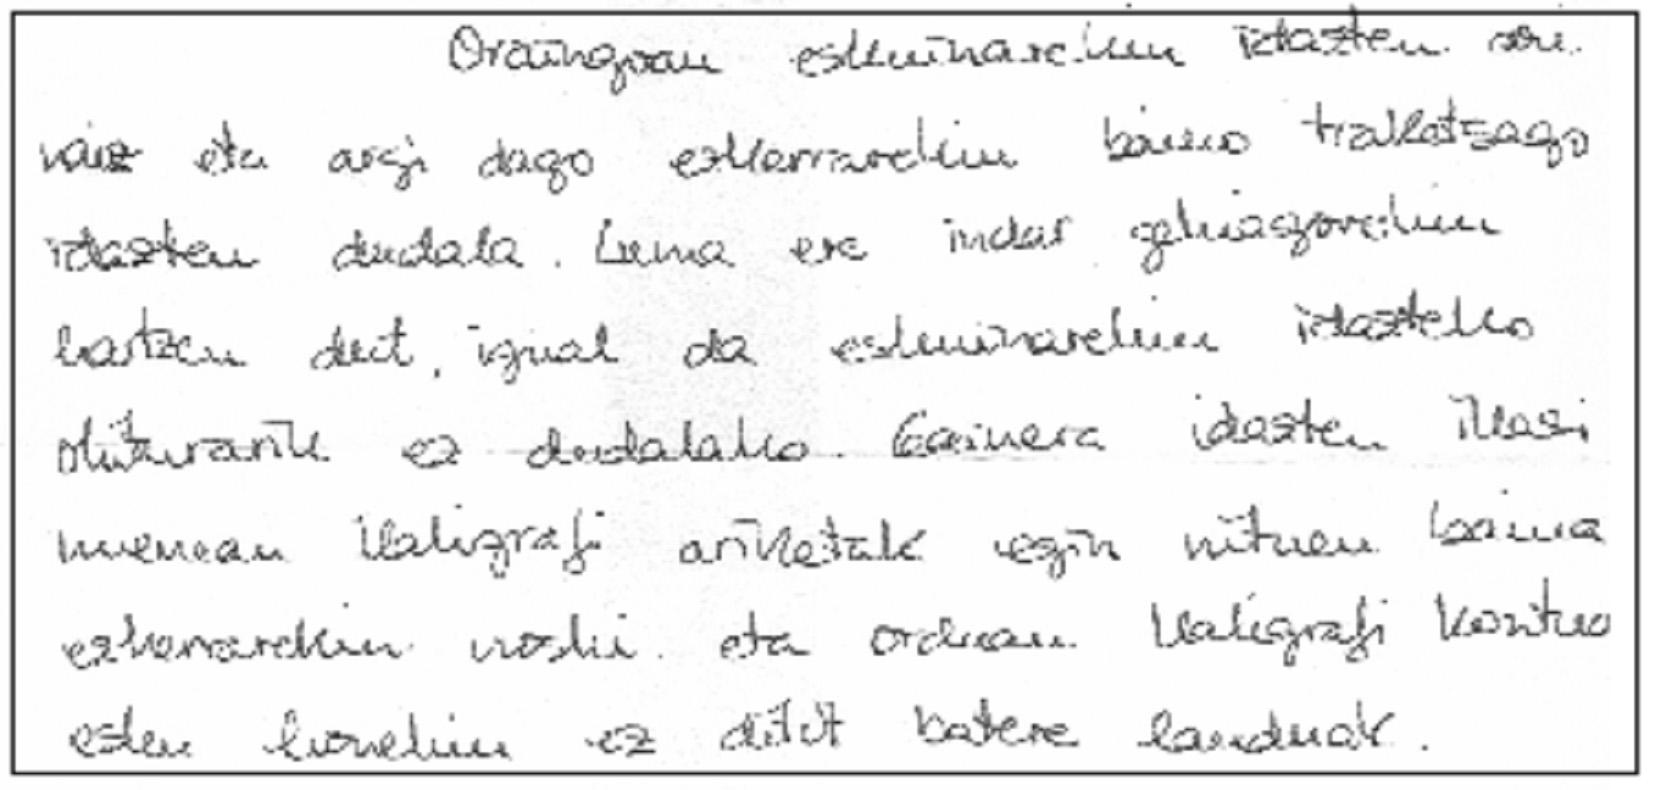 Oraingoan eskuinarekin idazten ari
naiz eta argi dago ezkerrarekin baino trakatsago
idazten dudala. Luma ere indar gehiagorekin
hartzen dut, igual da eskuinarekin idazteko
ohiturarik ez dudalako. Gainera idazten ikasi
nuenean kaligrafi ariketak egin nituen baina
ezkerrarekin noski. eta orduan kaligrafi kontuo
esku honekin ez ditut batere landuak.